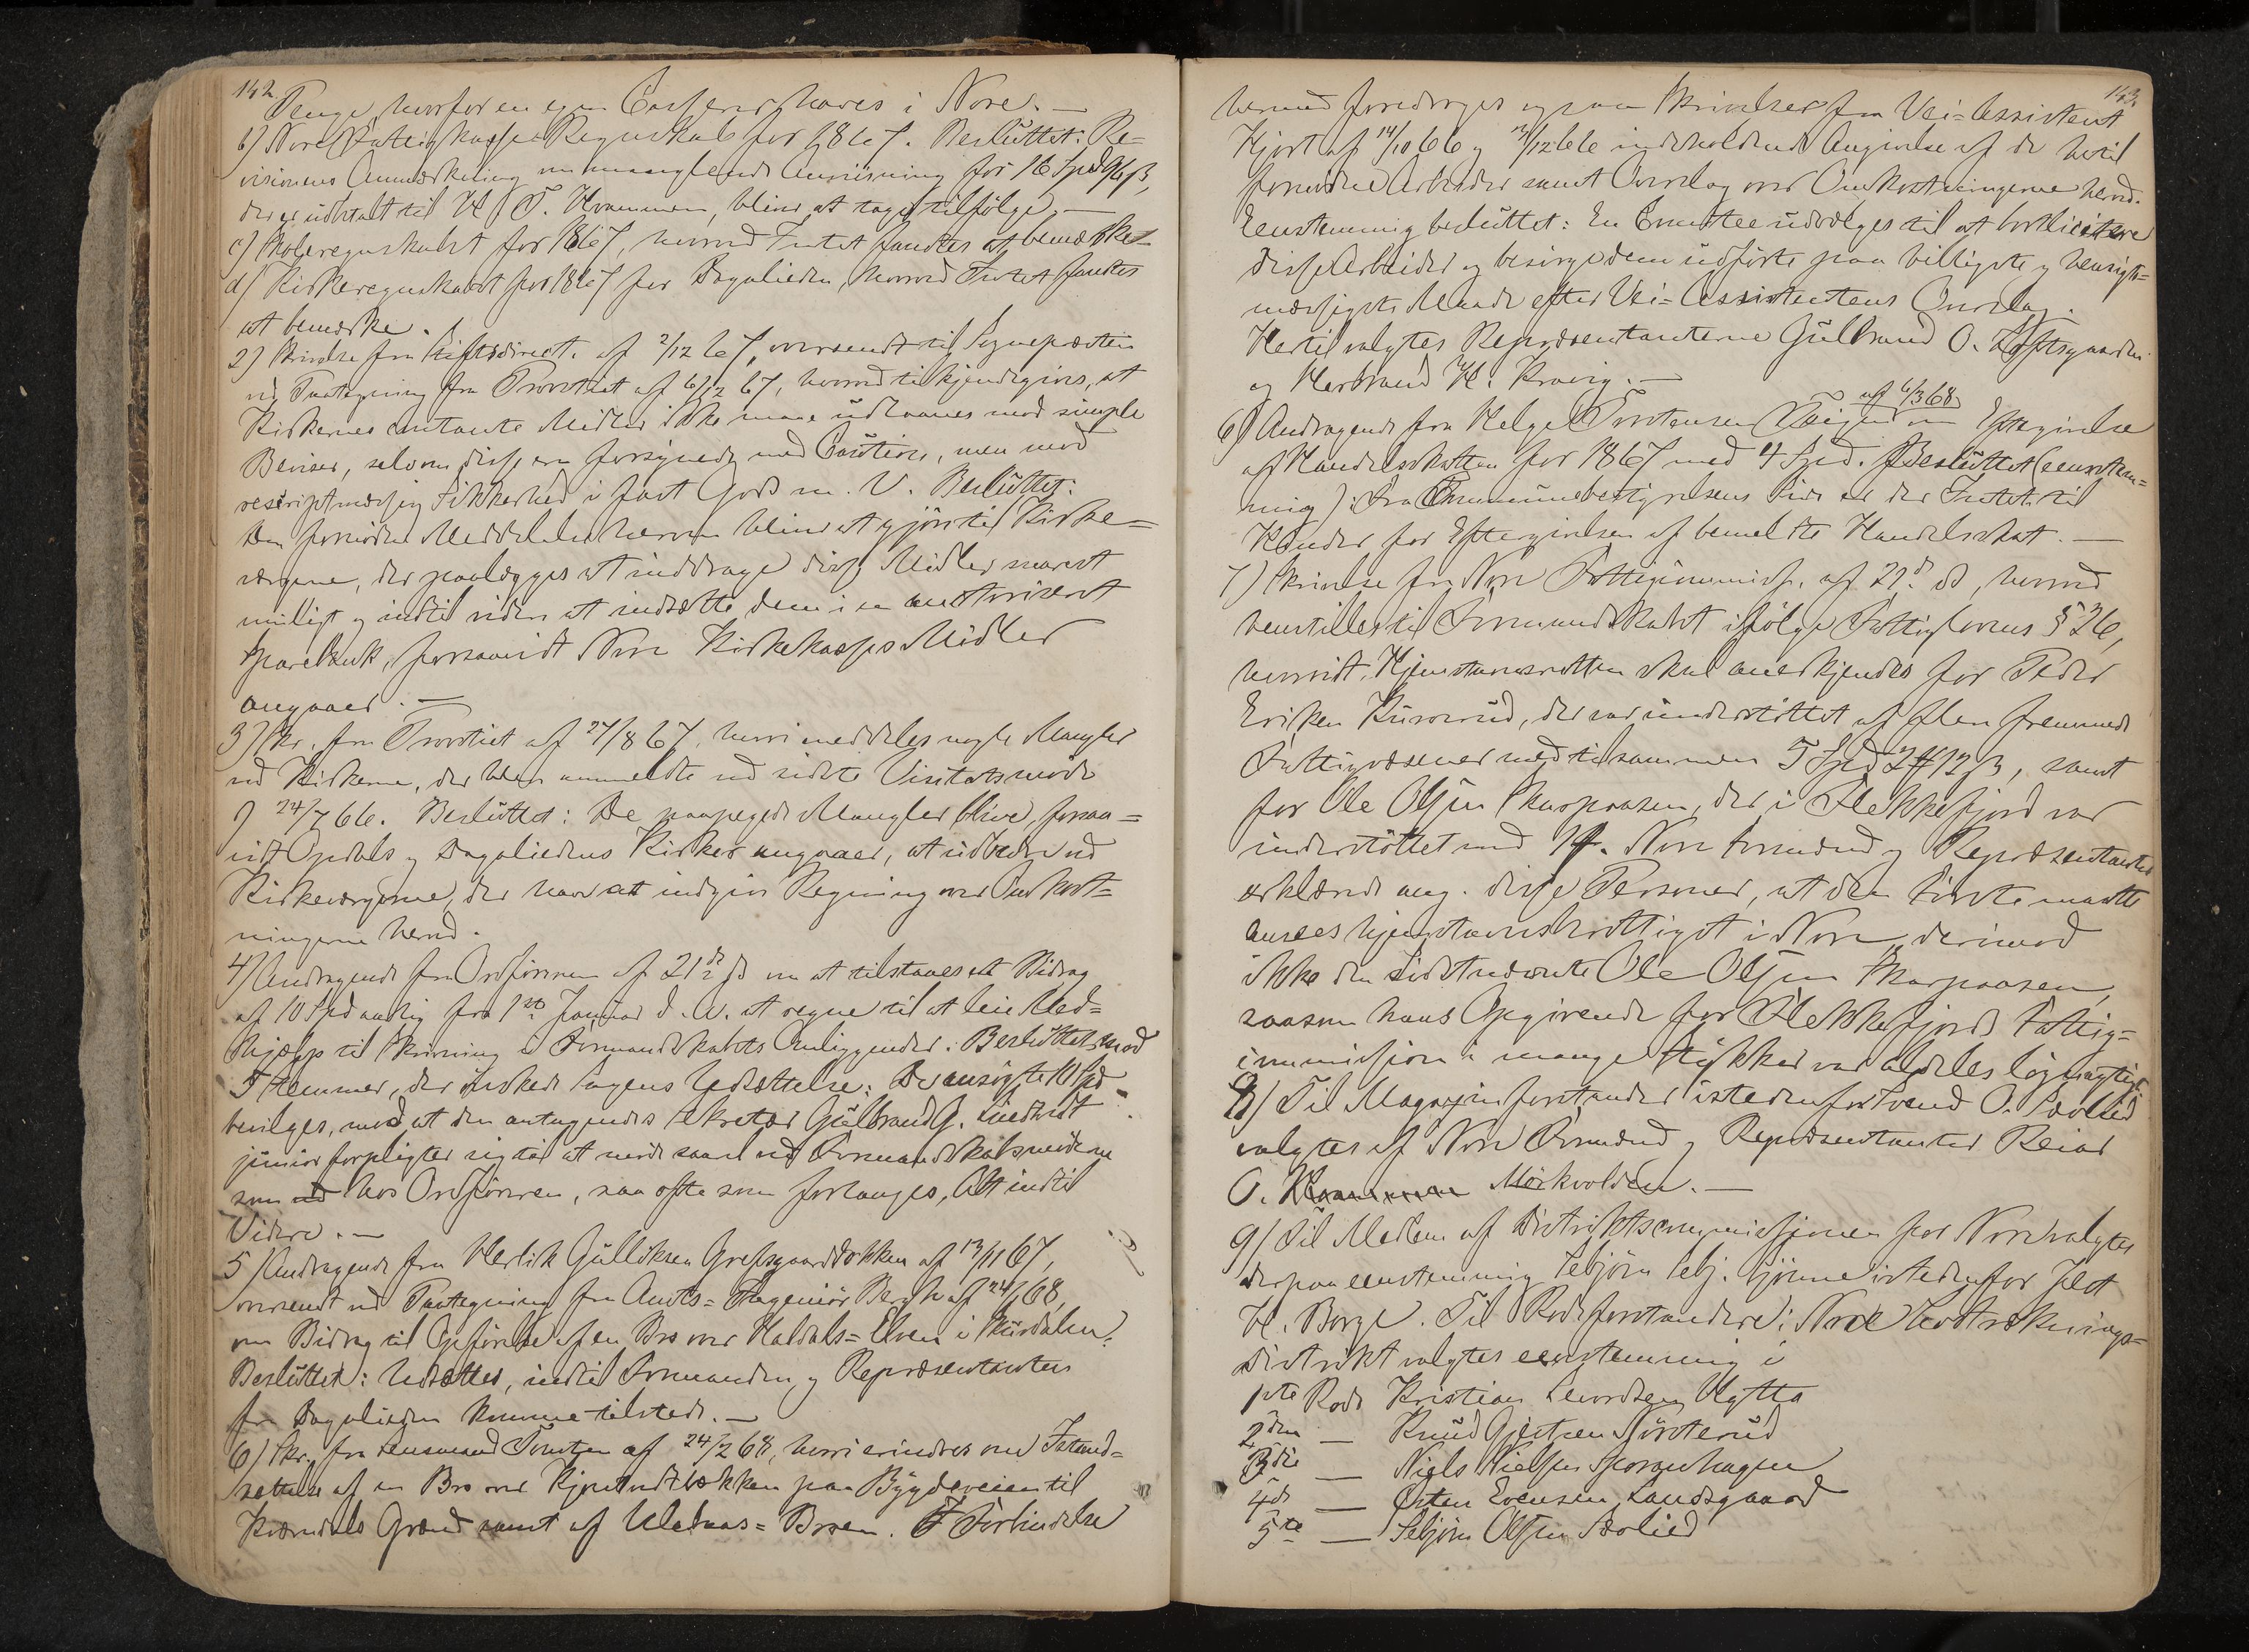 142
Penge, hvorfor en egen Casserer haves i Nore. —
b) Nore Fattigkasses Regnskab for 1867. Besluttet: Re=
visionens Anmærkning om manglende Anviisning for 16 Spd 96 ß,
der er udbetalt til H. T. Hvammen, bliver at tage tilfølge. —
c) Skoleregnskabet for 1867, hvorved Intet fandtes at bemærke
d) Kirkeregnskabet for 1867 for Dagalieden, hvorved Intet fandtes
at bemærke.
2) Skrivelse fra Stiftsdirect. af 2/12 67, oversendt til Sognepræsten
ved Paategning fra Provstiet af 6/12 67, hvorved tilkjendegives, at
Kirkernes contante Midler ikke maae udlaanes mod simple
Beviser, selv om disse ere forsynede med Caution, men mod
rescriptmæssig Sikkerhed i fast Gods m. V. Besluttet:
Den fornødne Meddelelse herom bliver at gjøre til Kirke=
værgerne, der paalægges at inddrage disse Midler snarest
muligt og indtil videre at indsætte dem i en autoriseret
Sparebank, forsaavidt Nore Kirkekasses Midler
angaaer. —
3) Skr. fra Provstiet af 27/8 67, hvori meddeles nogle Mangler
ved Kirkerne, der bleve anmeldte ved sidste Visitatsmøde
24/7 66. Besluttet: De paapegede Mangler blive, forsaa=
vidt Opdals og Dagaliedens Kirker angaaer, at udbedre ved
Kirkeværgerne, der have at indgive Regning over Omkost=
ningerne herved.
4) Andragende fra Ordføreren af 21de ds om at tilstaaes et Bidrag
af 10 Spd aarlig fra 1ste Januar d. A. at regne til at leie Med=
hjælp til Skrivning i Formandskabets Anliggender: Besluttet mod
5 Stemmer, der ønskede Sagens Udsættelse: De ansøgte 10 Spd
bevilges, mod at den antagendes Sekretær Gulbrand G.
junior forpligter sig til at møde saavel ved Formandskabsmøderne
som hos Ordføreren, saa ofte som forlanges, Alt indtil
Videre. —
5) Andragende fra Herlik Gulliksen Grefsgaardbækken af 13/11 67,
oversendt ved Paategning fra Amts=Ingeniør Bergh af 24/1 68,
om Bidrag til Opførelse af en Bro over Haldals=Elven i Skurdalen.
Besluttet: Udsættes, indtil Formanden og Repræsentanten
fra Dagalieden komme tilstede. —
6) Skr. fra Lensmand Tomten af 24/2 68, hvori erindres om Istand=
sættelse af en Bro over Kjøntvedtbækken paa Bygdeveien til
Kværndals Grænd samt af Uledaas=Broen. I Forbindelse
143.
hermed foredroges ogsaa Skrivelser fra Vei=Assistent
Hjort af 14/10 66 og 12/12 66 indeholdende Angivelse af de hertil
fornødne Arbeider samt Overslag over Omkostningerne herved.
Eenstemmig besluttet: En Comitee udvælges til at bortlicitere
disse Arbeider og besørge dem udførte paa billigste og hensigts=
mæssigste Maade efter Vei=Assistentens Overslag.
Hertil valgtes Repræsentanterne Gulbrand O. Toftsgaarden
og Herbrand H. Kravig. —
af 6/3 68
6) Andragende fra Helge Torstensen om Eftergivelse
af Handelsskatten for 1867 med 4 Spd. Besluttet (eenstem=
mig): Fra Communebestyrelsens Side er der Intet til
Hinder for Eftergivelsen af bemeldte Handelsskat. —
7) Skrivelse fra Nore Fattigcommiss. af 21de ds, hvorved
henstilles til Formandskabet ifølge Fattiglovens § 36,
hvorvidt Hjemstavnsretten skal anerkjendes for Peder
Eriksen Kusserud, der var understøttet af flere fremmede
Fattigvæsener med tilsammen 5 Spd 2 # 12 ß, samt
for Ole Olsen Skarpaasen, der i Flekkefjord var
understøttet med 1 #. Nore Formænd og Repræsentanter
erklærede ang. disse Personer, at den Første maatte
ansees hjemstavnsberettiget i Nore, derimod
ikke den Sidstnævnte Ole Olsen Skarpaasen,
saasom hans Opgivende for Flekkefjords Fattig=
commission i mange Stykker var aldeles løgnagtigt
8) Til Magazinforstander istedenfor Tvend O. Sævlid
valgtes af Nore Formænd og Repræsentanter Reiar
O. Mørkvolden. —
9) Til Medlem af Distriktscommissionen for Nore valgtes
derpaa eenstemmig Sebjørn Sebj. Bjønne istedenfor Jelt
H. Borge. Til Rodeforstandere i Nore Udtræknings=
distrikt valgtes eenstemmig i
1ste Rode Kristian Levordsen Hytta
2den — Knud Gjertsen Sørterud
3die — Niels Nielsen Sporanhagen
4de — Østen Evensen Landsgaard
5te — Sebjørn Olsen Sævlied